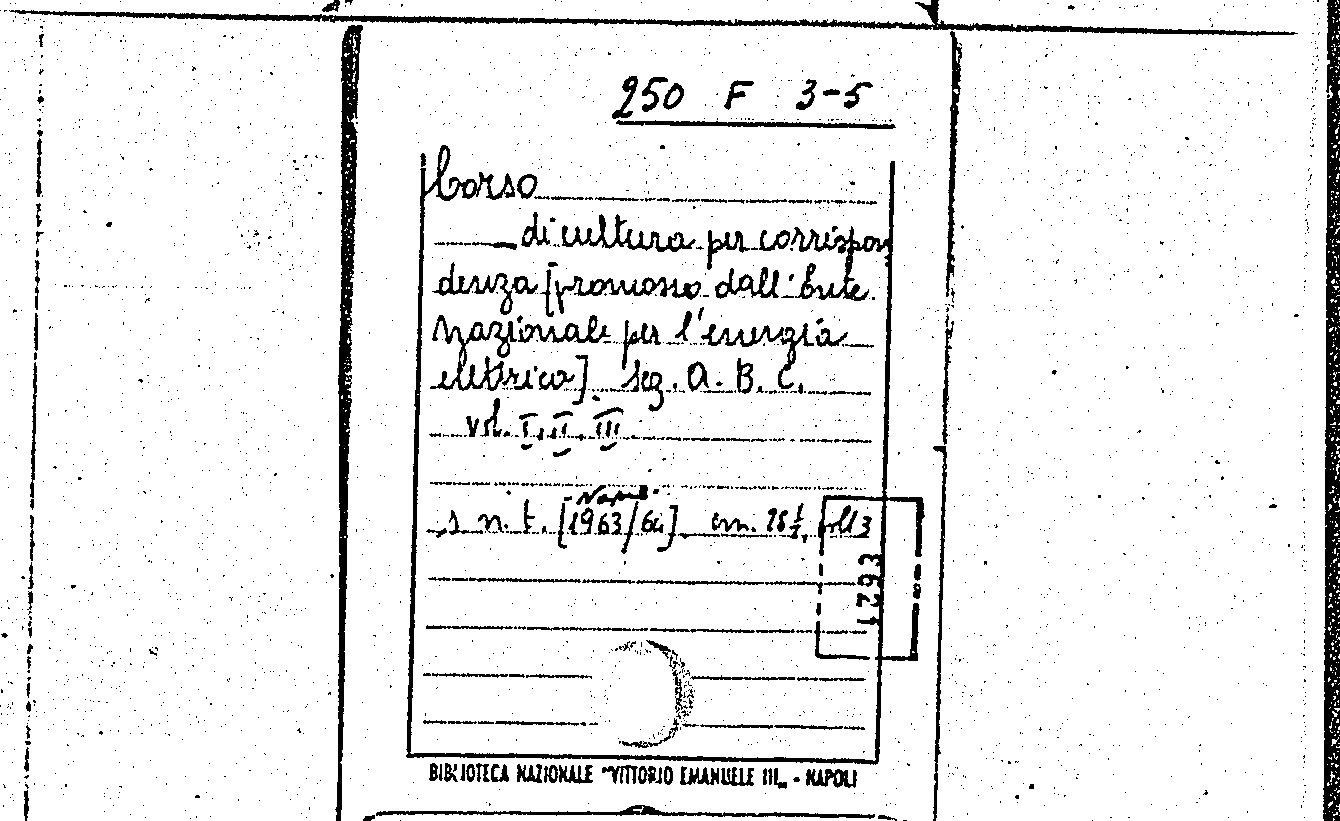 250 F 3-5
Corso
di cultura per corrispon
denza [promosso dall'Ente
Nazionale per l'energia
elettrica]. Sez. A. B. C.
vol. I, II, III.
Napoli
s. n. t. [1963/64] cm. 28 voll 3
3621
BIBLIOTECA NAZIONALE "VITTORIO EMANUELE III„ - NAPOLI